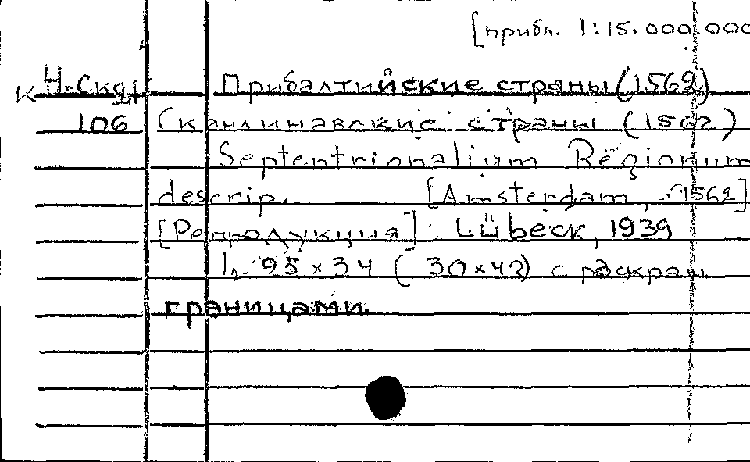 [прибл. 1:15.000.000
Прибалтийские страны (1562)
106 Скандинавские страны (1562)
Septentrionalium Regionum
descrip. [Amsterdam, 1562]
[Репродукция] Lübeck, 1939
1 л. 95 x 34 (30 x 42) с раскраш.
границами.